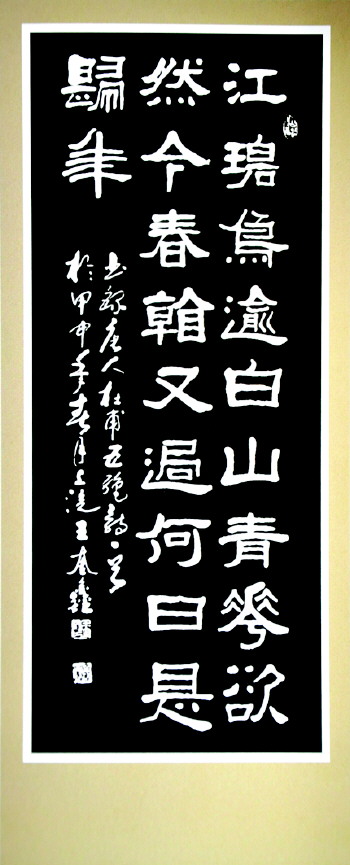 江碧鳥逾白山青華欲
然今春看又過何日是
歸年
書錄唐人杜甫五絕詩一首
於甲申年春月上浣王奎